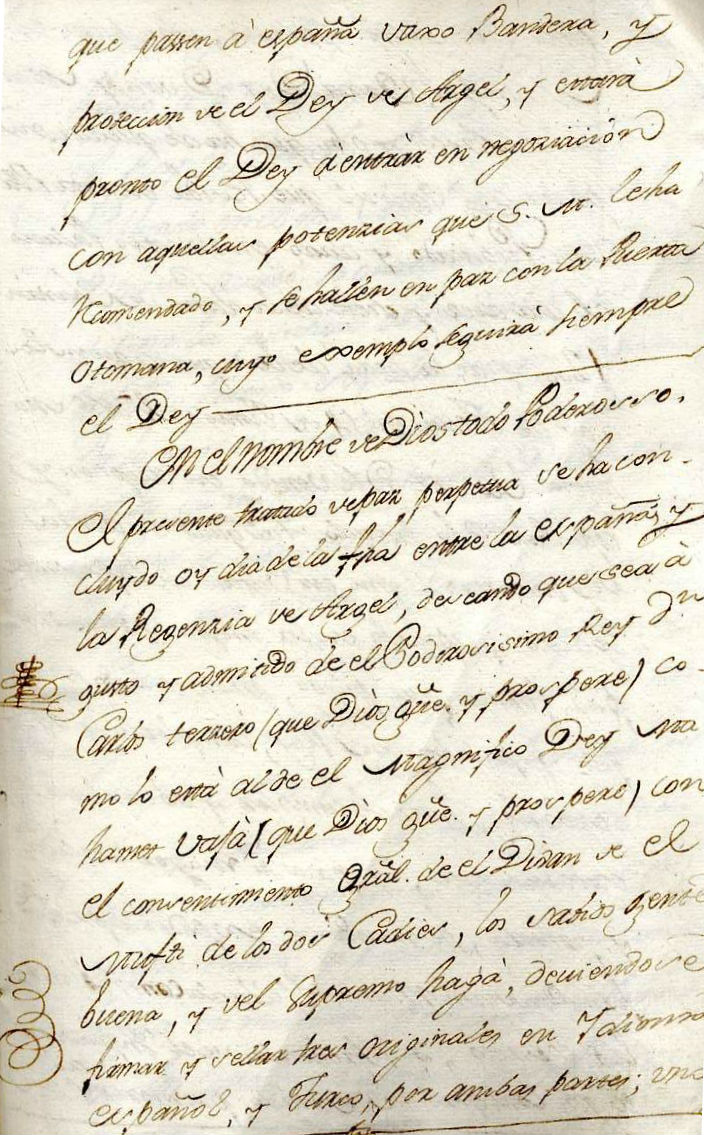 que passen à españa vaxo Bandera, y
proteccion de el Dey de Argel, y estarà
pronto el Dey à entràr en negoziaciòn
con aquellas potenzias que S. M. le ha
Recomendado, y se hallen en paz con la Puerta
Otomana, cuyo exemplo seguirà siempre
el Dey
En el nombre de Dios todo Poderosso.
El presente tratado de paz perpetua se ha con-
cluydo oy dia de la fha entre la españa, y
la Regenzia de Argel, deseando que sea à
gusto y admitido de el Poderosisimo Rey dn
Carlos terzero (que Diòs gũe. y prospere) co-
mo lo està al de el Magnifico Dey Ma
hamet Vajà (que Dios gũe. y prospere) con
el consentimiento Grãl. de el Divan de el
Mufti de los dos Cadies, los savios gente
buena, y del Supremo hagà, deviendose
firmar y sellar tres originales en Idioma
español, y Turco, por ambas partes; uno